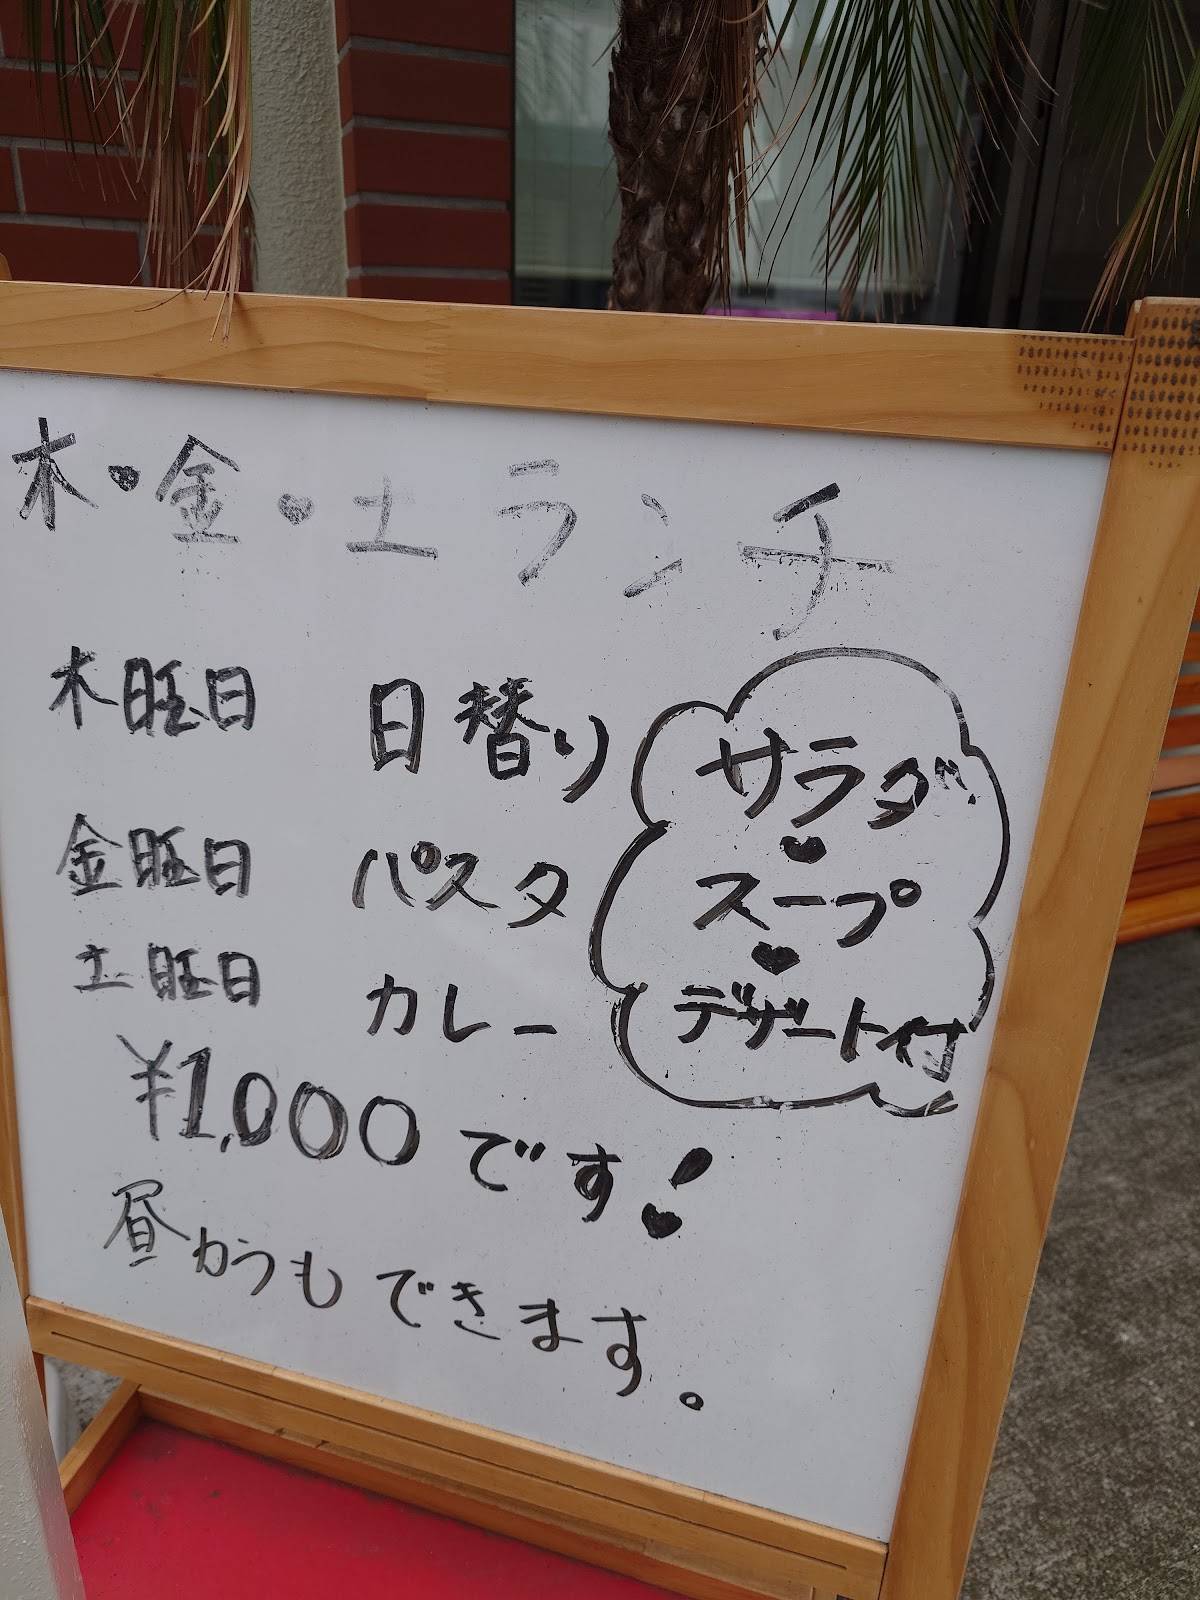 木・金・土ランチ
木曜日 日替り
金曜日 パスタ
土曜日 カレー
サラダ
スープ
デザート付
¥1,000です!
昼からもできます。